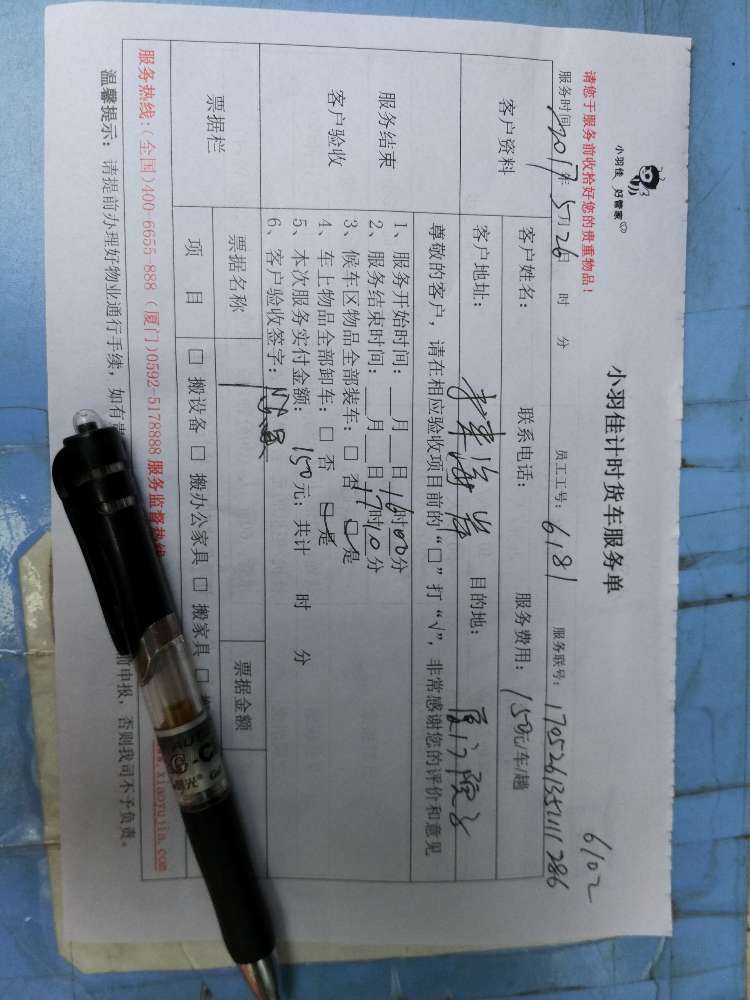 6102
小羽佳 好管家
小羽佳计时货车服务单
请您于服务前收拾好您的贵重物品!
服务时间: 2017年 5月 26日 时 分 员工工号: 6181 服务联号: 1705261352111286
客户资料
客户姓名: 联系电话: 服务费用: 150元/车/趟
客户地址: 海岸 目的地: 厦门
尊敬的客户,请在相应验收项目前的“□”打“√”,非常感谢您的评价和意见
服务结束
客户验收
1、服务开始时间: __月__日 16时00分
2、服务结束时间: __月__日 17时10分
3、候车区物品全部装车: □ 否 □ 是
4、车上物品全部卸车: □ 否 □ 是
5、本次服务实付金额: 150元; 共计 时 分
6、客户验收签字:
票据栏
票据名称 票据金额
项 目 □ 搬设备 □ 搬办公家具 □ 搬家具 □
服务热线:(全国)400-6655-888 (厦门)0592-5178888 服务监督热线 www.xiaoyujia.com
温馨提示: 请提前办理好物业通行手续, 如有 前申报, 否则我司不予负责。